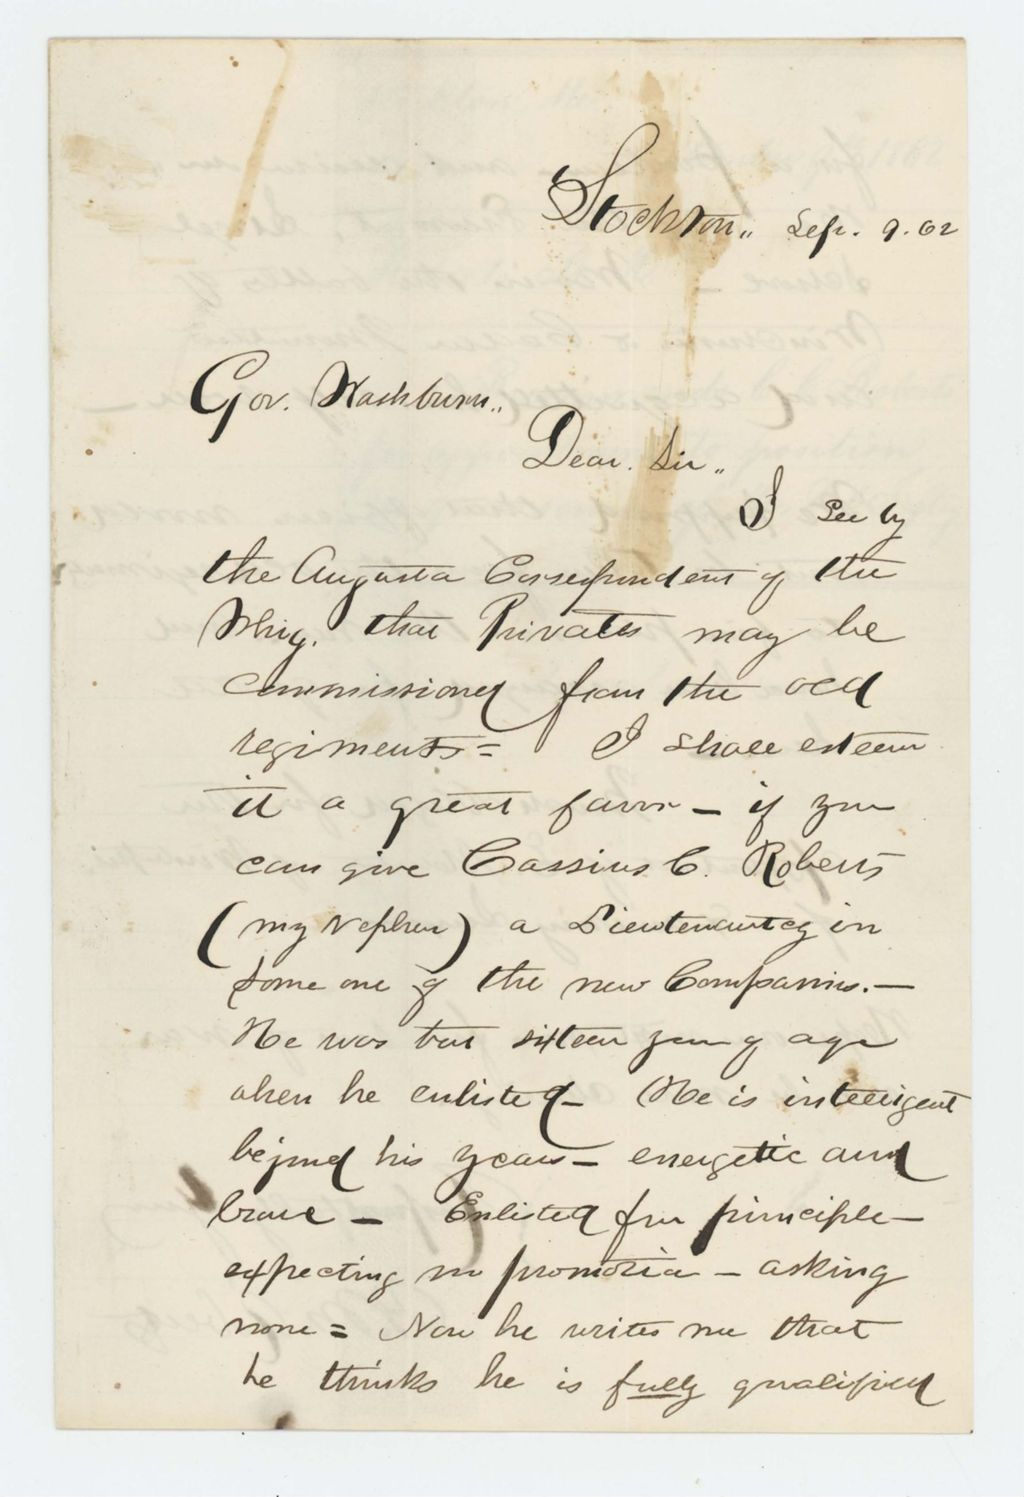 Stockton,, Sep. 9. 62
Gov. Washburn,,
Dear. Sir,,
I see by
the Augusta Correspondent of the
Whig. that Privates may be
commissioned from the old
regiments = I shall esteem
it a great favor - if you
can give Cassius C. Roberts
(my Nephew) a Lieutenantcy in
some one of the new Companies. -
He was but sixteen years of age
when he enlisted - He is intelligent
beyond his years - energetic and
brave - Enlisted from principle -
expecting no promotion - asking
none = Now he writes me that
he thinks he is fully qualified